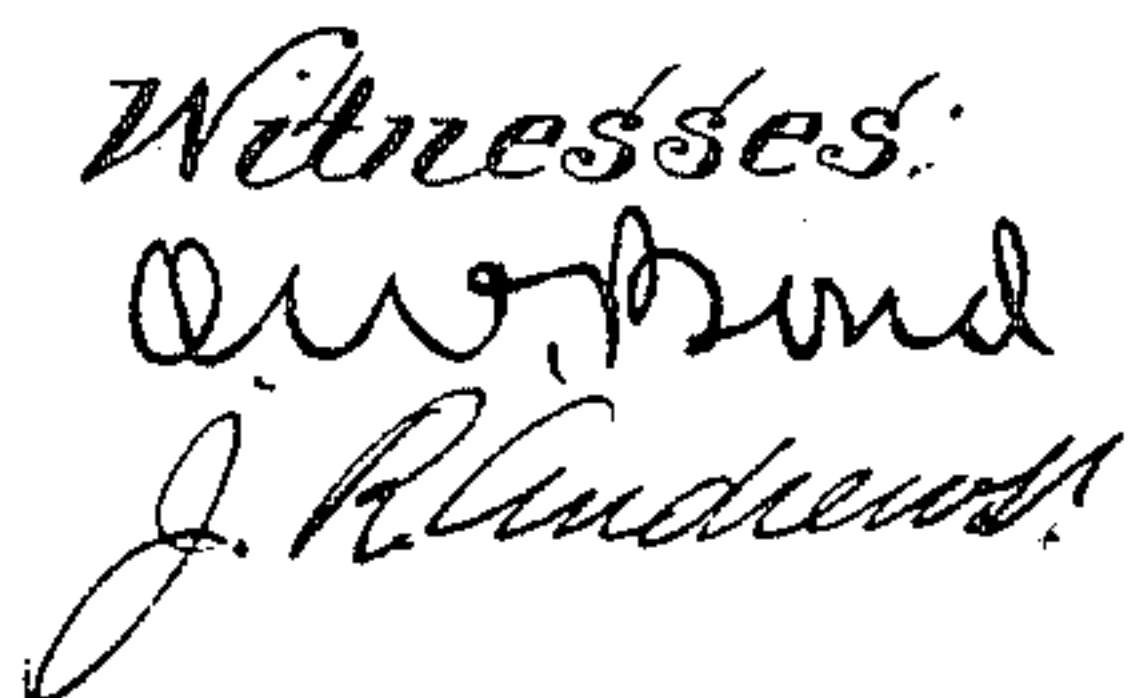 Witnesses:
O. W. Bond
J. R. Andrews.